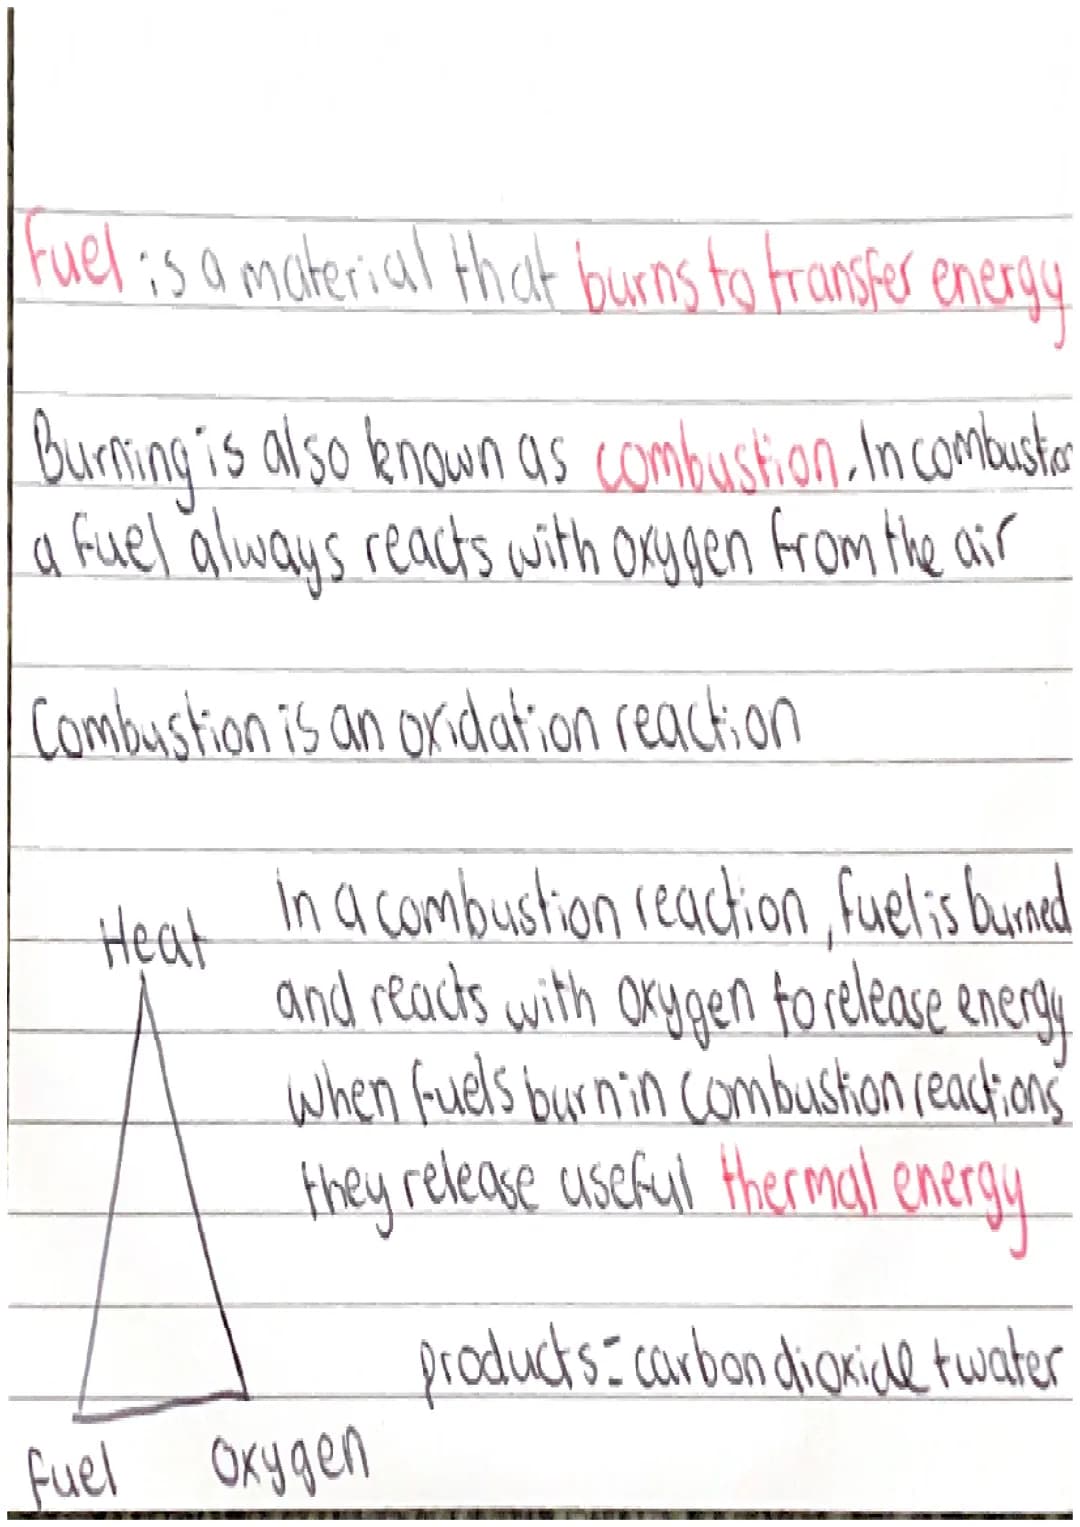 Fuel is a material that burns to transfer energy
Burning is also known as combustion. In combustion
a fuel always reacts with oxygen from the air
Combustion is an oxidation reaction
Heat
In a combustion reaction, fuel is burned
and reacts with oxygen to release energy
when fuels burn in combustion reactions
they release useful thermal energy
products = carbon dioxide + water
fuel oxygen